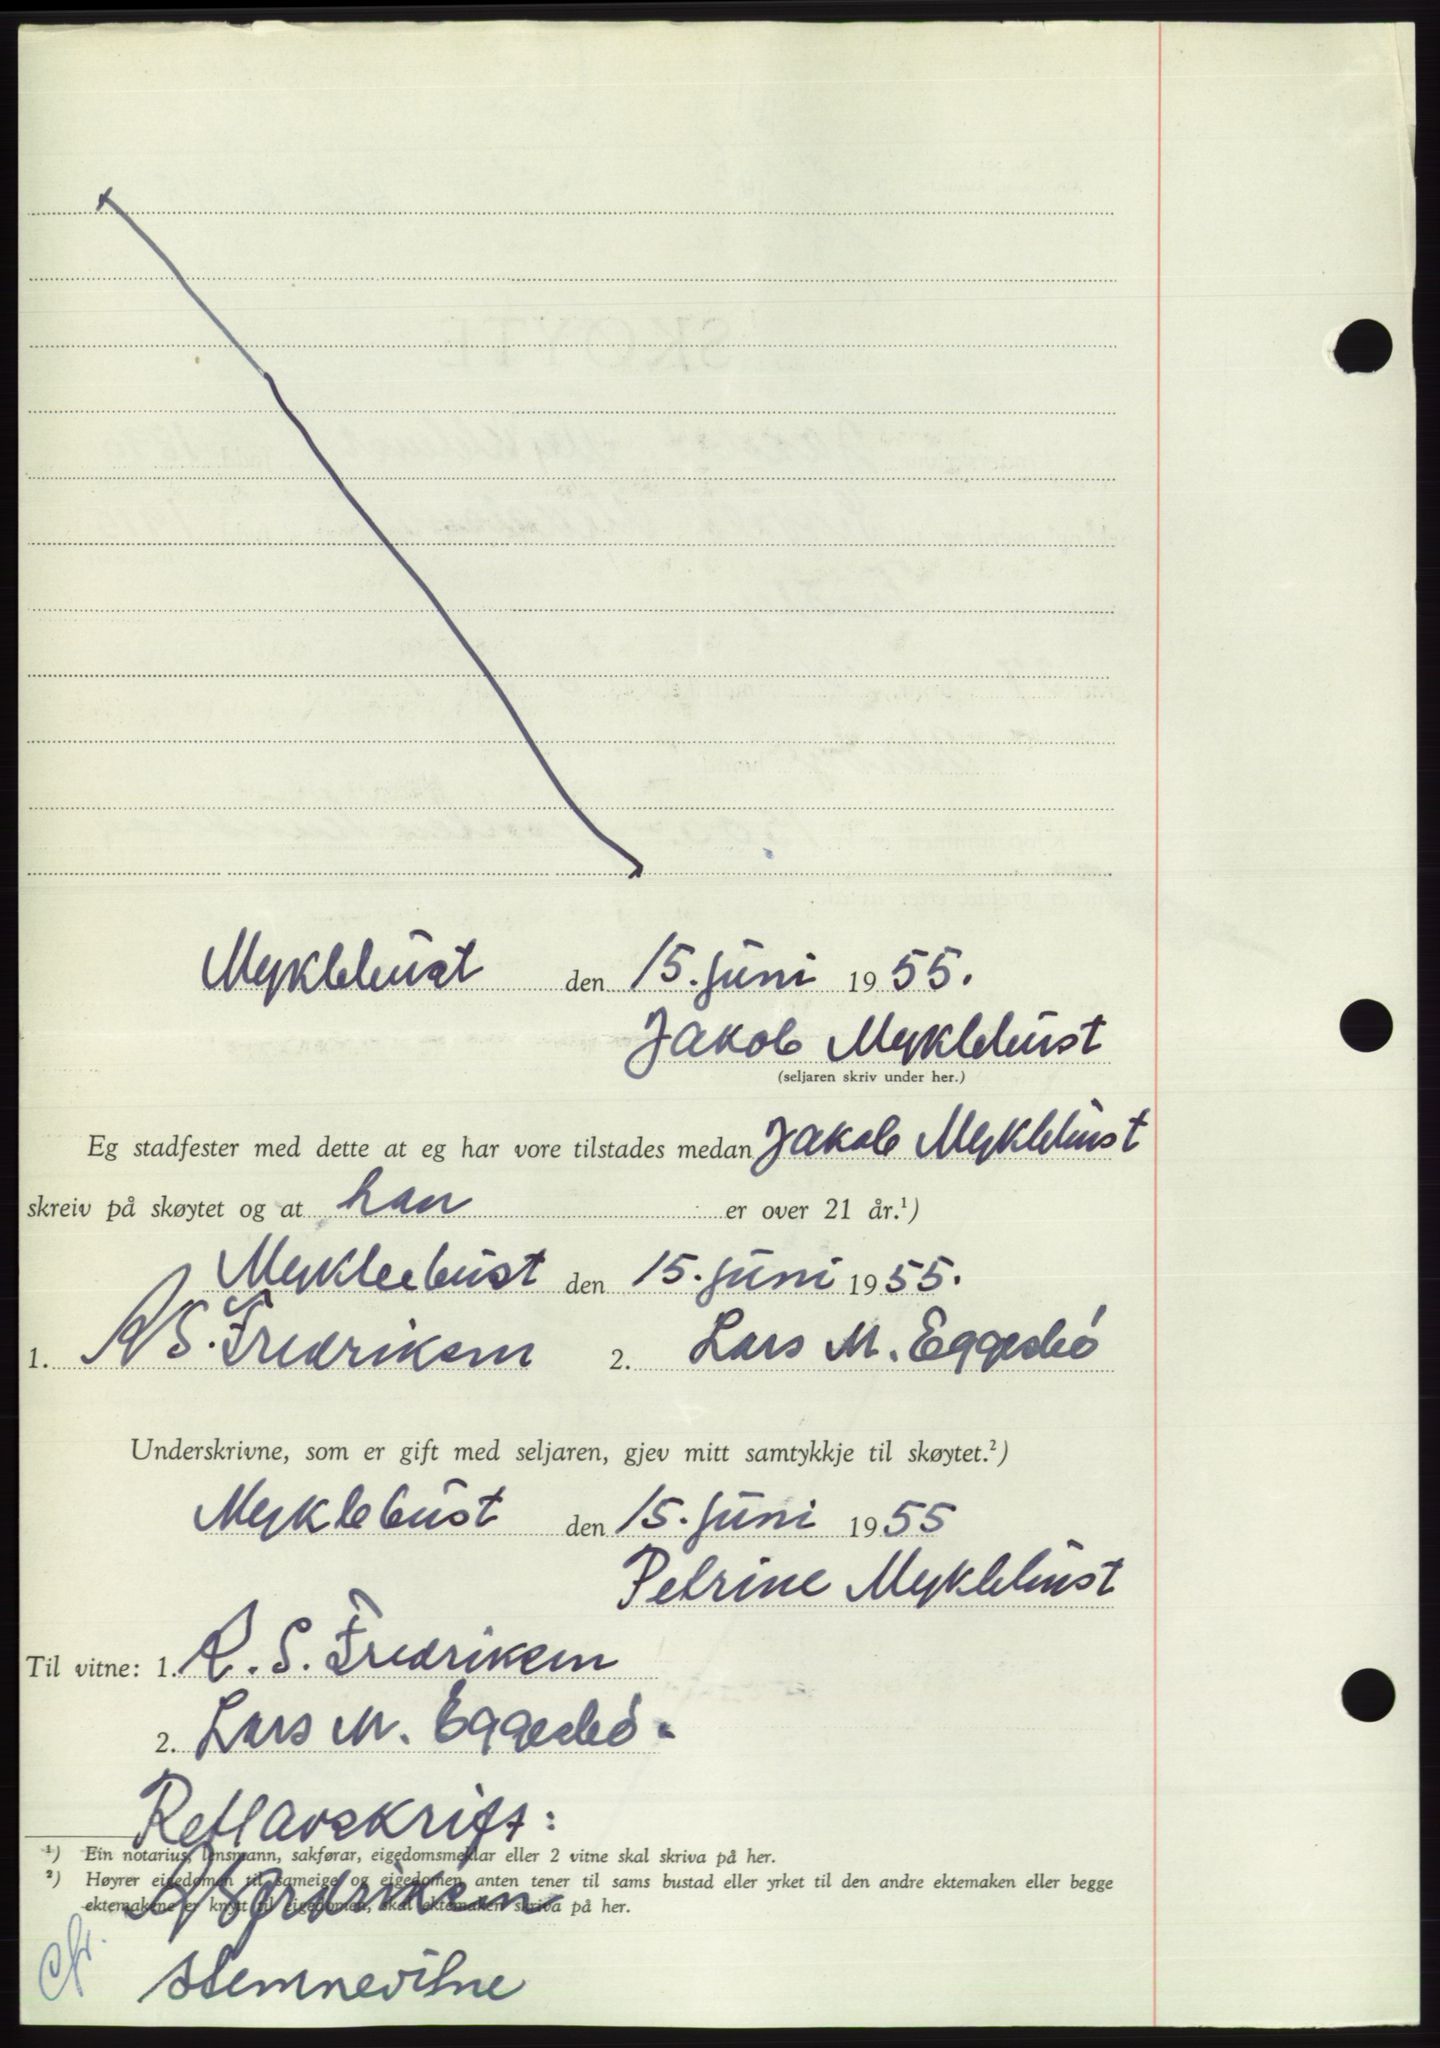 Myklebust den 15. juni 1955.
Jakob Myklebust
(seljaren skriv under her.)
Eg stadfester med dette at eg har vore tilstades medan Jakob Myklebust
skreiv på skøytet og at han er over 21 år.¹)
Myklebust den 15. juni 1955.
1. S. Fredriksen 2. Lars M. Eggesbö
Underskrivne, som er gift med seljaren, gjev mitt samtykkje til skøytet.²)
Myklebust den 15. juni 1955
Petrine Myklebust
Til vitne: 1. R. S. Fredriksen
2. Lars M. Eggesbö.
Rett avskrift:
¹) Ein notarius, lensmann, sakførar, eigedomsmeklar eller 2 vitne skal skriva på her.
²) Høyrer eigedomen til sameige og eigedomen anten tener til sams bustad eller yrket til den andre ektemaken eller begge
ektemakene er knytt til eigedomen, skal ektemaken skriva på her.
Fredriksen
stemnevitne